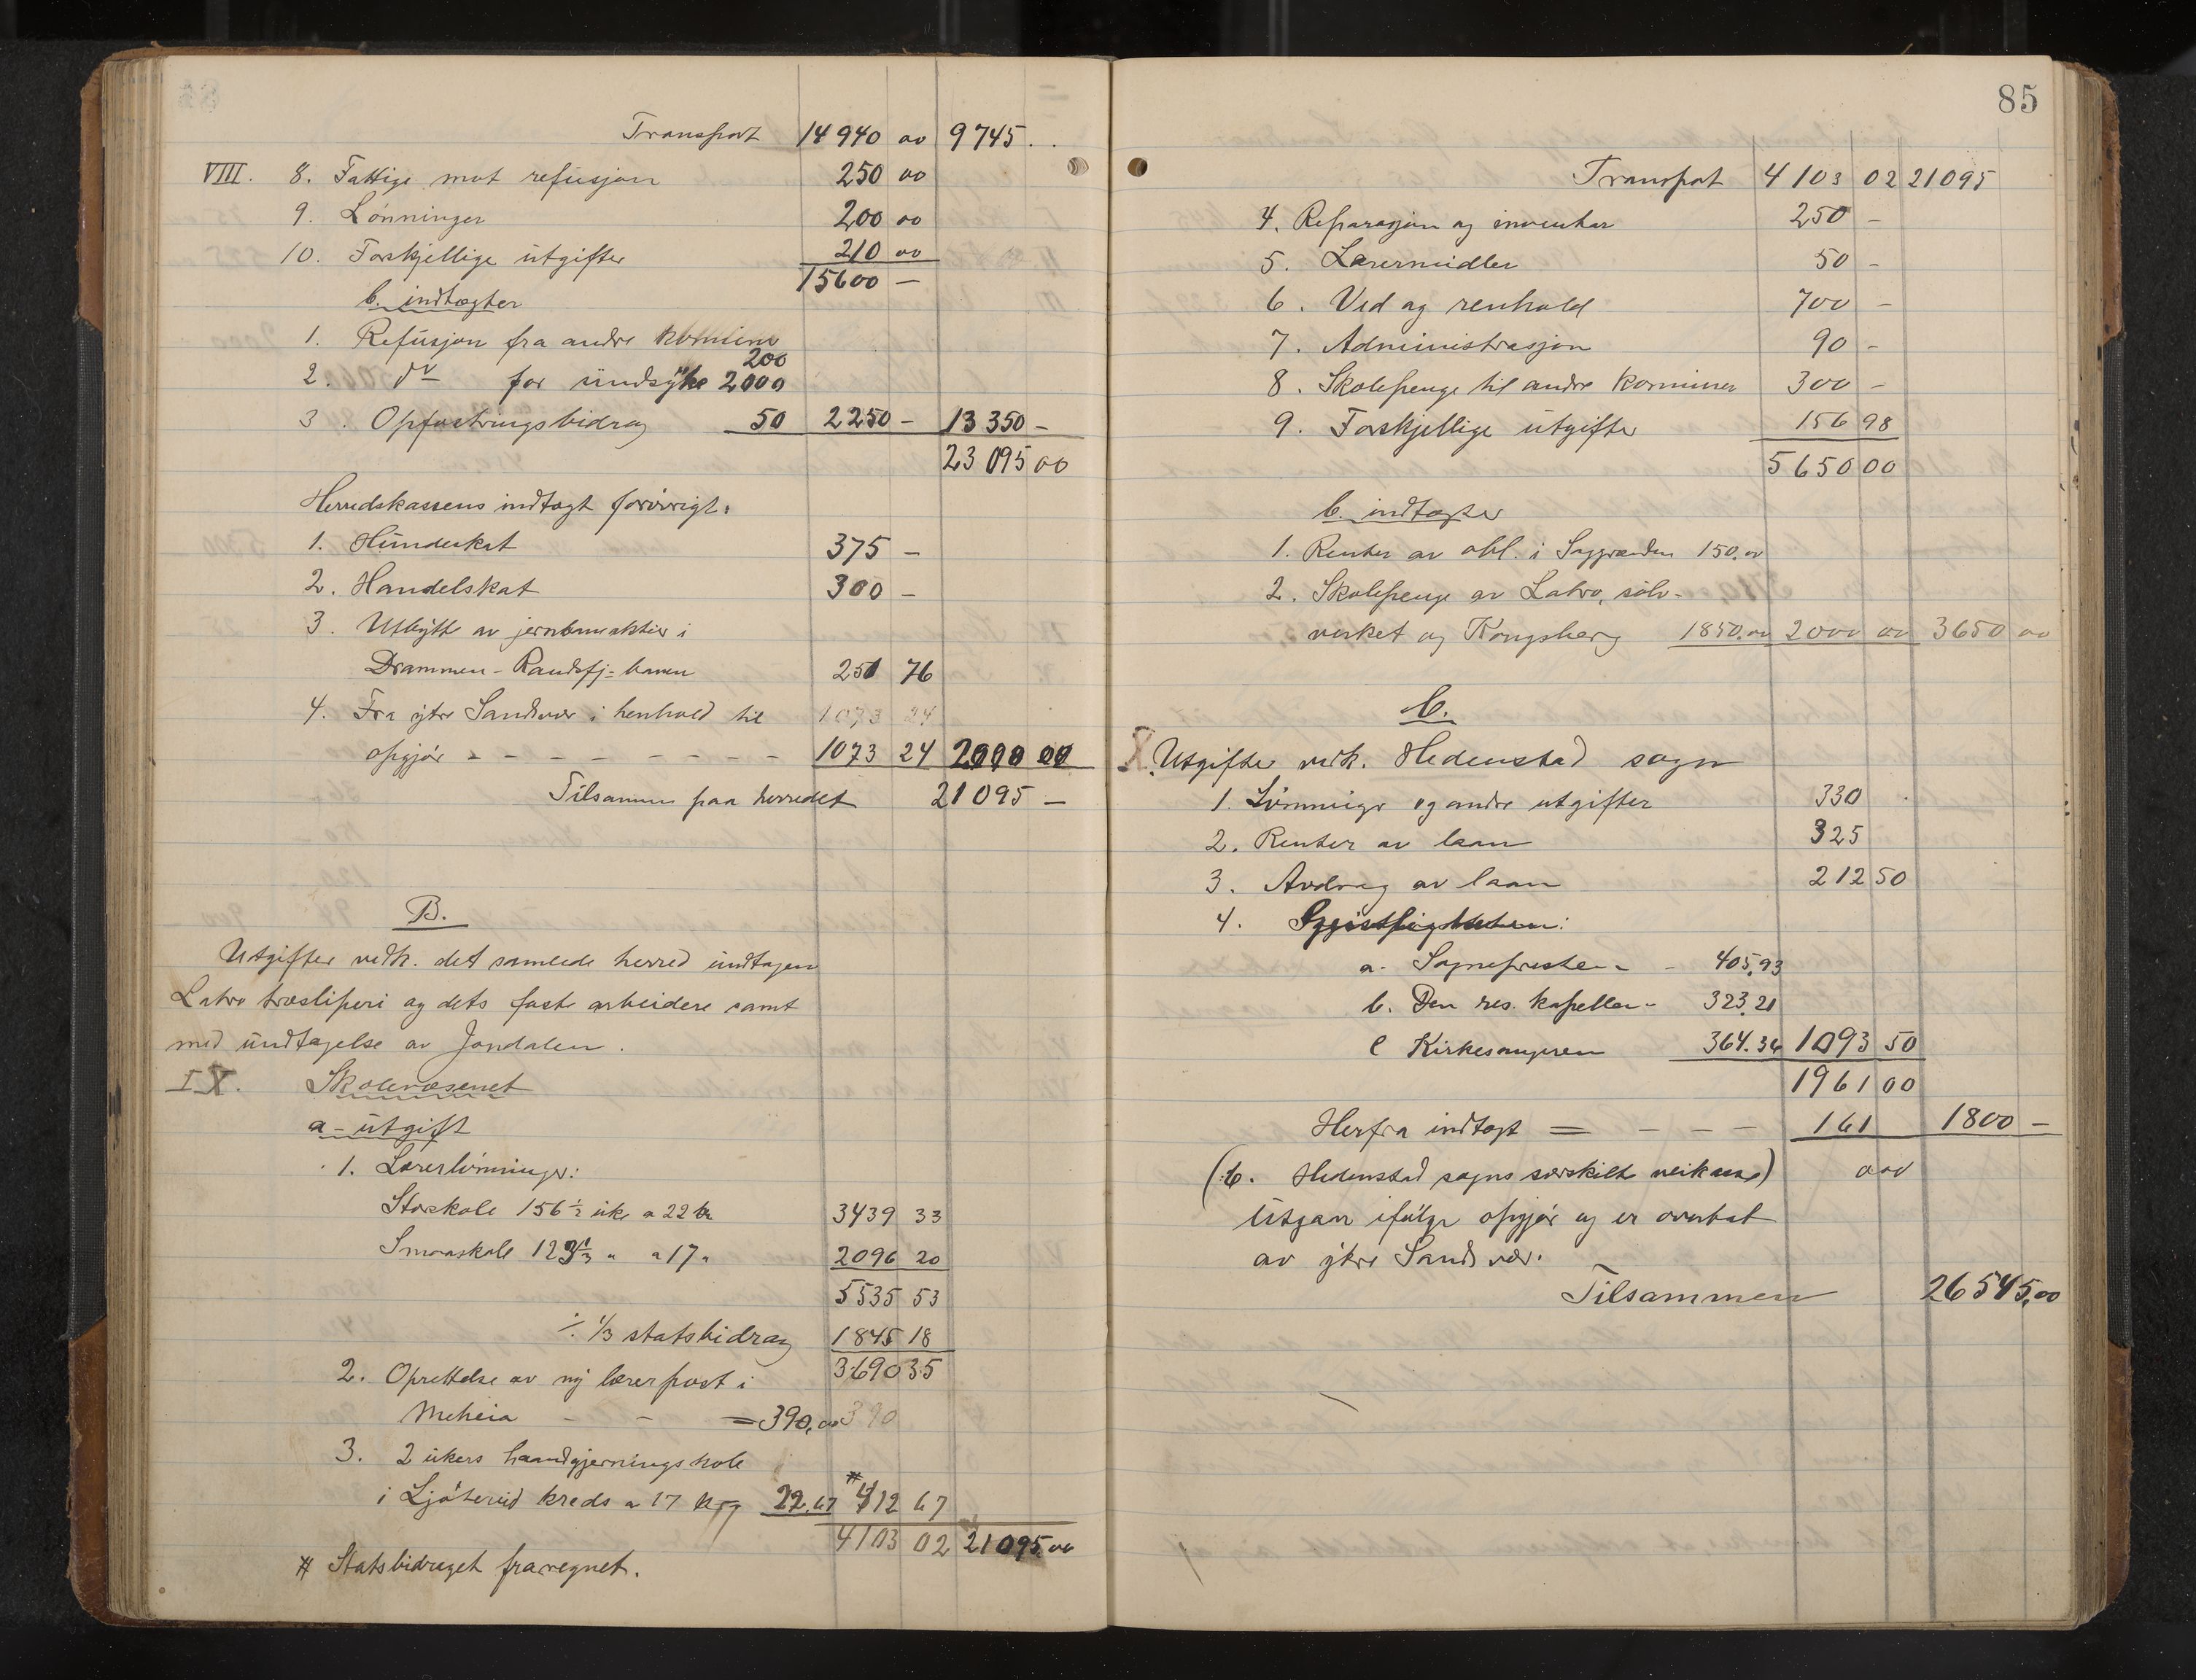 Transport 14940 00 9745 . .
VIII. 8. Fattige mot refusjon 250 00
9. Lønninger 200 00
10. Forskjellige utgifter 210 00
15600 —
b. indtægter
1. Refusjon fra andre kommuner 200
2. do for sindsyke 2000
3. Opfostringsbidrag 50 2250 — 13350 —
23095 00
Herredskassens indtægt forøvrigt:
1. Hundeskat 375 —
2. Handelskat 300 —
3. Utbytte av jernbaneaktier i
Drammen - Randsfj - banen 251 76
4. Fra ytre Sandsvær i henhold til 1073 24
opgjør - - - - - - - - 1073 24 2000 00
Tilsammen paa herredet 21095 —
B.
Utgifter vedk. det samlede herred undtagen
Labro træsliperi og dets faste arbeidere samt
med undtagelse av Jondalen.
IX. Skolevæsenet
a - utgift
1. Lærerlønninger:
Storskole 156 1/2 uke a 22 kr 3439 33
Smaaskole 123 1/3 " a 17 " 2096 20
5535 53
÷ 1/3 statsbidrag 1845 18
3690 35
2. Oprettelse av ny lærerpost i
Meheia - - = 390,00 390
3. 2 ukers haandgjerningskole
i Ljøterud kreds a 17 kr 22.67 # 412 67
4103 02 21095.00
# Statsbidraget fraregnet.
85
Transport 4103 02 21095
4. Reparasjon og inventar 250 -
5. Lærermidler 50 -
6. Ved og renhold 700 -
7. Administrasjon 90 -
8. Skolepenge til andre kommuner 300 -
9. Forskjellige utgifter 156 98
5650 00
b. indtægter
1. Renter av obl. i Saggrenden 150.00
2. Skolepenge av Labro, sølv-
verket og Kongsberg 1850.00 2000 00 3650 00
C.
X. Utgifter vedk. Hedenstad sogn
1. Lønninger og andre utgifter 330 .
2. Renter av laan 325
3. Avdrag av laan 212 50
4. Geistligheten:
a. Sognepresten - - 405.93
b. Den res. kapellan - 323.21
c Kirkesangeren 364.36 1093 50
1961 00
Herfra indtægt = - - - 161 1800 —
(6. Hedenstad sogns særskilte veikasse) 000
Utgaar ifølge opgjør og er overtat
av ytre Sandsvær.
Tilsammen 26545,00